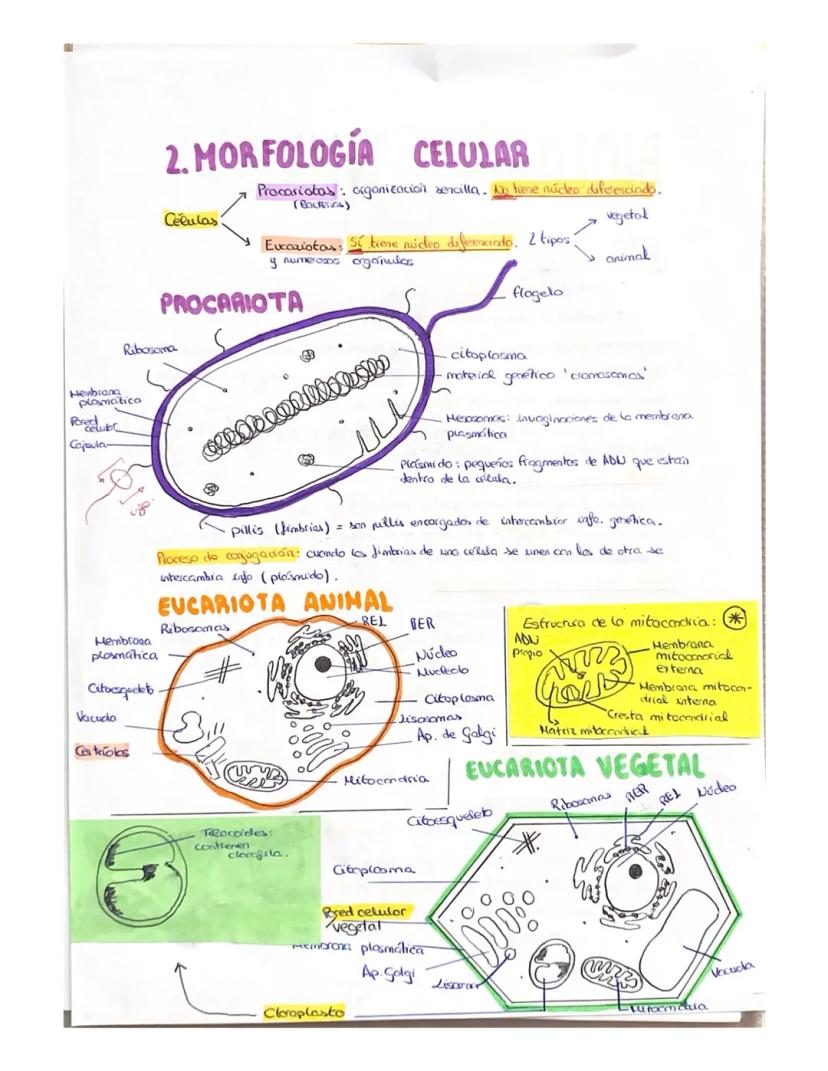 2. MORFOLOGÍA CELULAR
Células
Procariotas: organización sencilla. No tiene núcleo diferenciado.
(Bacterias)
Eucariotas: Sí tiene núcleo diferenciado. 2 tipos
y numerosos orgánulos
vegetal
animal
PROCARIOTA
flagelo
Ribosoma
citoplasma
material genético 'cromosomas'
Membrana
plasmática
Pared
celular
Cápsula
Mesosomas: invaginaciones de la membrana
plasmática
Plásmido: pequeños fragmentos de ADN que están
dentro de la célula.
info.
pillis (fimbrias) = son pillis encargados de intercambiar info. genética.
Proceso de conjugación: cuando las fimbrias de una célula se unen con las de otra se
intercambia info (plásmido).
EUCARIOTA ANIMAL
Ribosomas
REL
RER
Membrana
plasmática
Núcleo
Nucleolo
Citoesqueleto
Citoplasma
Vacuola
Lisosomas
Ap. de Golgi
Centriolos
Mitocondria
Estructura de la mitocondria:
ADN
propio
Membrana
mitocondrial
externa
Membrana mitocon-
drial interna
Cresta mitocondrial
Matriz mitocondrial
EUCARIOTA VEGETAL
Ribosomas
RER
REL
Núcleo
Citoesqueleto
Tilacoides:
contienen
clorofila.
Citoplasma
Pared celular
vegetal
Membrana plasmática
Ap. Golgi
Vacuola
Mitocondria
Cloroplasto